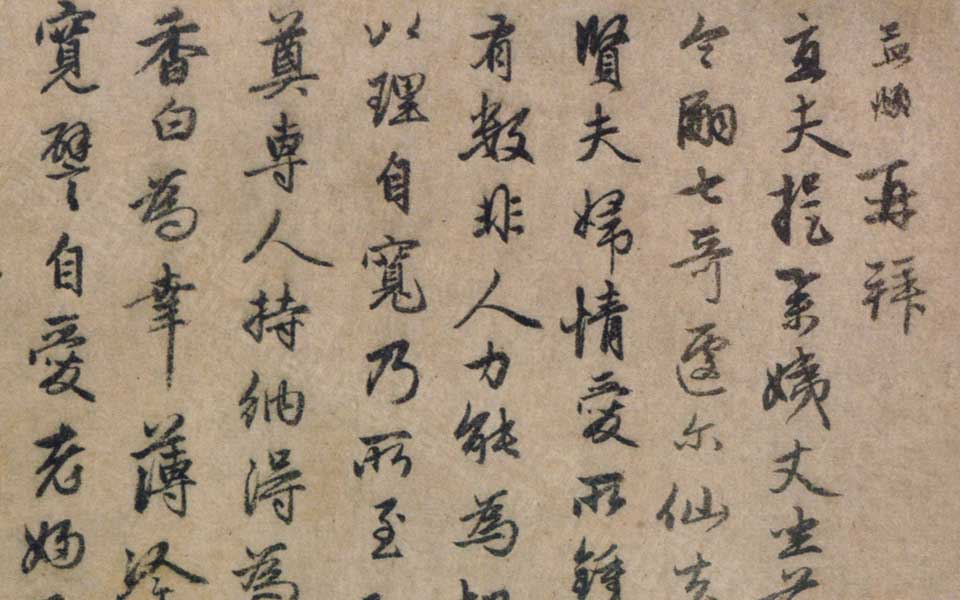 孟頫再拜
直夫提举姨丈坐前
令嗣七哥遽尔仙去
賢夫婦情愛所鍾
有數非人力能為切
以理自寬乃所至
奠専人持納得為
香白為幸薄
寬譬自愛老婦